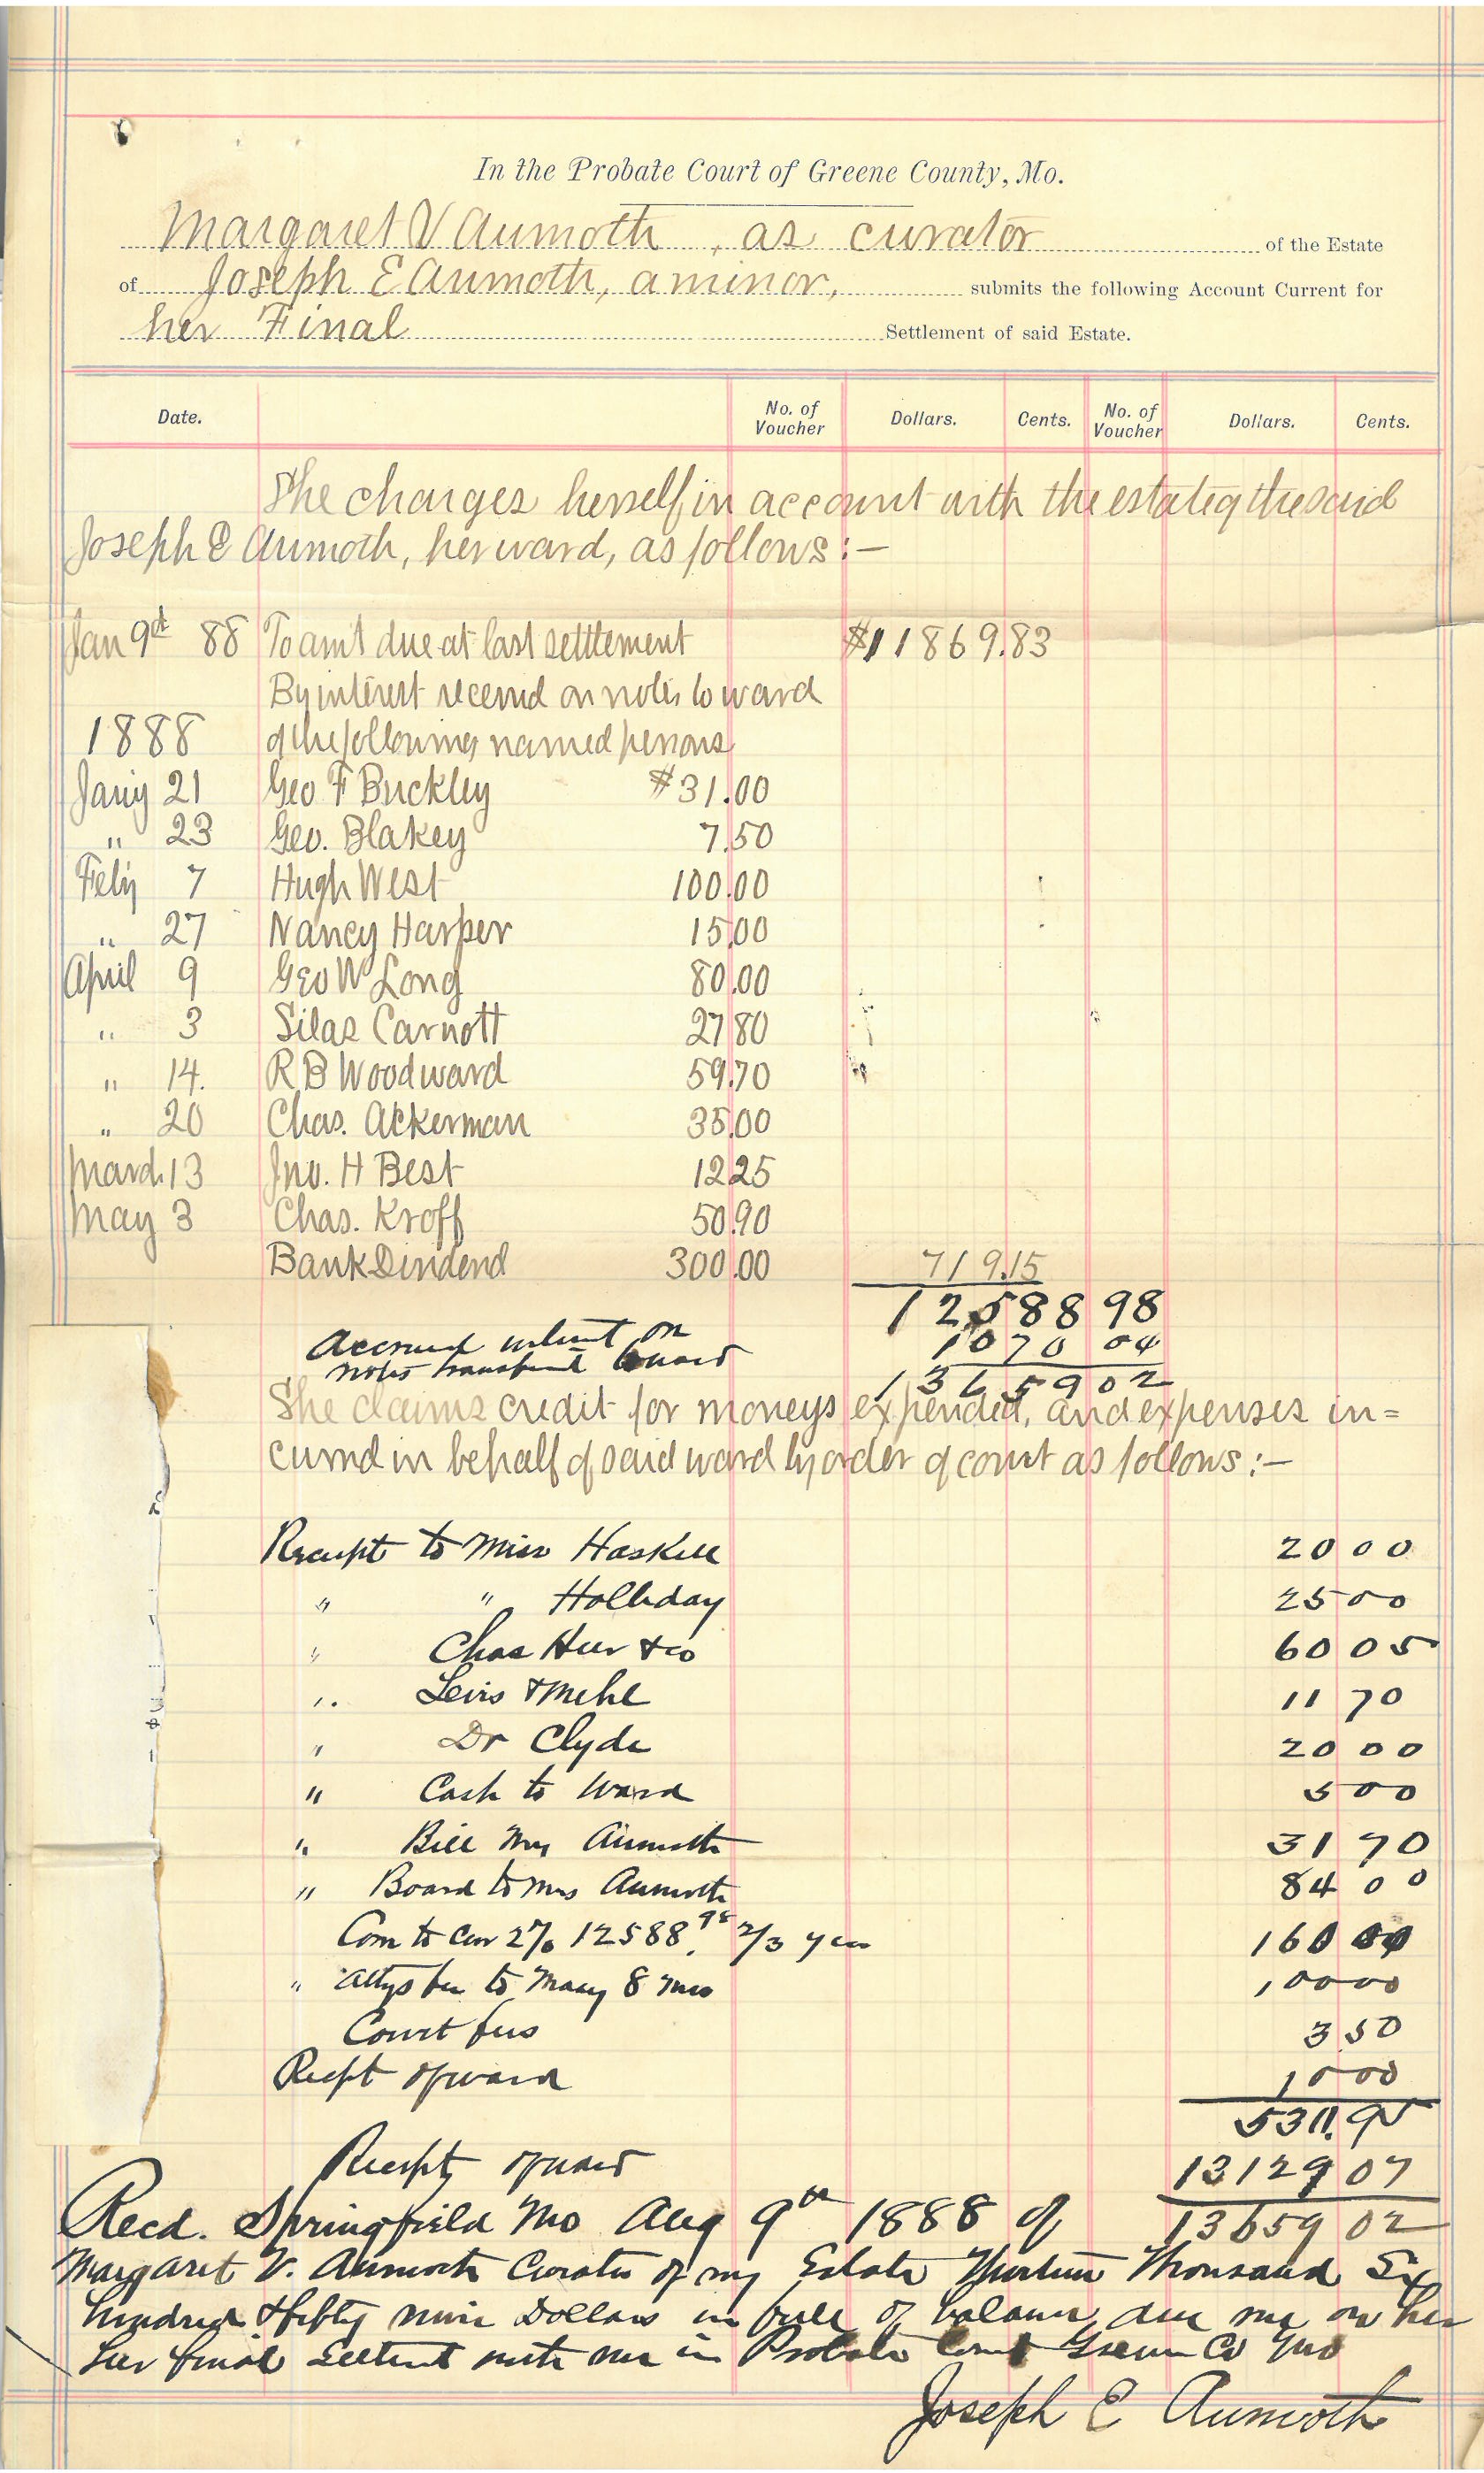 In the Probate Court of Greene County, Mo.
Margaret V Aumoth, as curator of the Estate
of Joseph E Aumoth, a minor, submits the following Account Current for
her Final Settlement of said Estate.
Date. No. of Voucher Dollars. Cents. No. of Voucher Dollars. Cents.
She charges herself in account with the estate of the said
Joseph E Aumoth, her ward, as follows:—
Jan 9th 88 To am't due at last settlement $11869.83
By interest received on notes to ward
1888 of the following named persons
Jany 21 Geo F Buckley $31.00
" 23 Geo. Blakey 7.50
Feby 7 Hugh West 100.00
" 27 Nancy Harper 15.00
April 9 Geo W Long 80.00
" 3 Silas Carnott 27 80
" 14. R B Woodward 59.70
" 20 Chas. Ackerman 35.00
March 13 Jno. H Best 12 25
May 3 Chas. Kroff 50.90
Bank Dividend 300.00 719.15
12588 98
Accrued interest on 1070 04
notes transferred to ward
13659 02
She claims credit for moneys expended, and expenses in=
curred in behalf of said ward by order of court as follows:—
Receipt to Miss Haskell 20 00
" " Holliday 25 00
" Chas Heer & co 60 05
" Levis & Mehl 11 70
" Dr Clyde 20 00
" Cash to Ward 5 00
" Bill Mrs Aumoth 31 70
" Board to Mrs Aumoth 84 00
Com to Cur 2% 12588.98 2/3 year 160
" Attys fee to Massy 8 mos 100 00
Court fees 3 50
Recpt of ward 10 00
531.95
Receipt of ward 13129 07
Recd. Springfield Mo Aug 9th 1888 of 13659 02
Margaret V. Aumoth Curator of my Estate Thirteen Thousand Six
hundred & fifty nine Dollars in full of balance due me on her
her final Settlement with me in Probate Court Greene Co Mo
Joseph E Aumoth